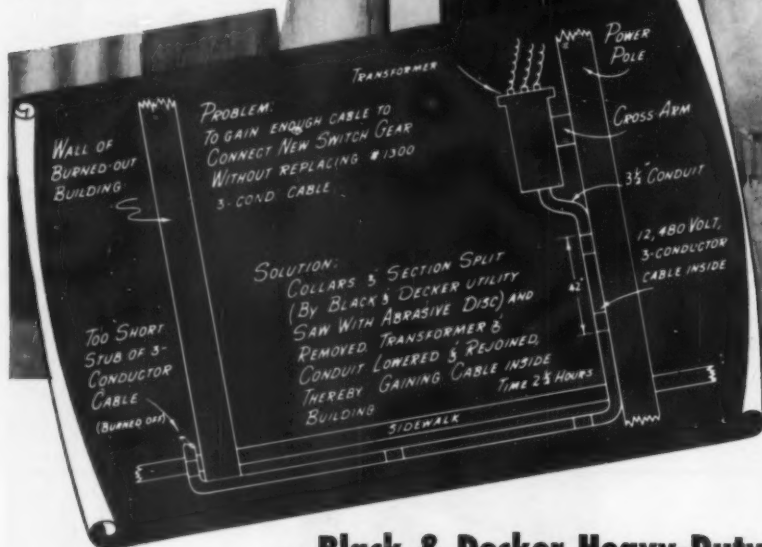 TRANSFORMER
POWER
POLE
CROSS-ARM
3½" CONDUIT
12,480 VOLT,
3-CONDUCTOR
CABLE INSIDE
42"
WALL OF
BURNED-OUT
BUILDING
PROBLEM:
TO GAIN ENOUGH CABLE TO
CONNECT NEW SWITCH GEAR
WITHOUT REPLACING #1300
3-COND CABLE
SOLUTION:
COLLARS & SECTION SPLIT
(BY BLACK & DECKER UTILITY
SAW WITH ABRASIVE DISC) AND
REMOVED. TRANSFORMER &
CONDUIT LOWERED & REJOINED,
THEREBY GAINING CABLE INSIDE
BUILDING
TIME 2½ HOURS
TOO SHORT
STUB OF 3-
CONDUCTOR
CABLE
(BURNED OFF)
SIDEWALK
Black & Decker Heavy Duty